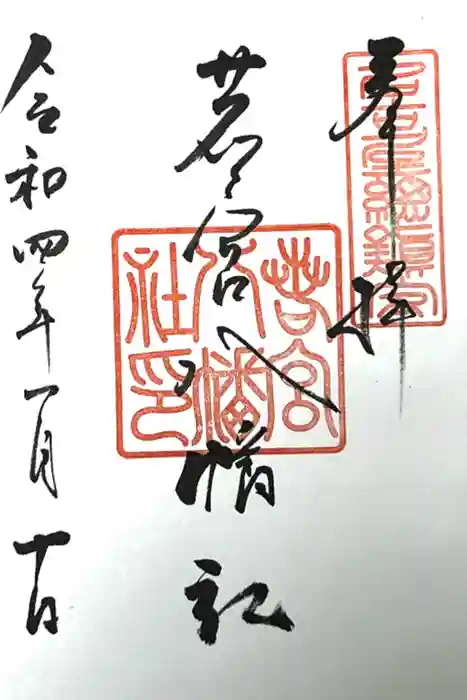 奉拝
若宮八幡社
若宮八幡社印
令和四年一月十日